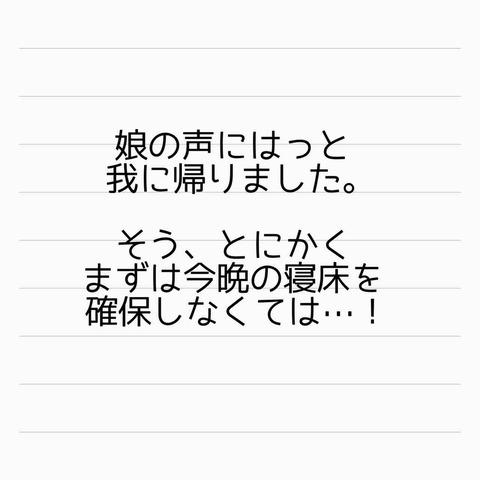 娘の声にはっと
我に帰りました。
そう、とにかく
まずは今晩の寝床を
確保しなくては…！